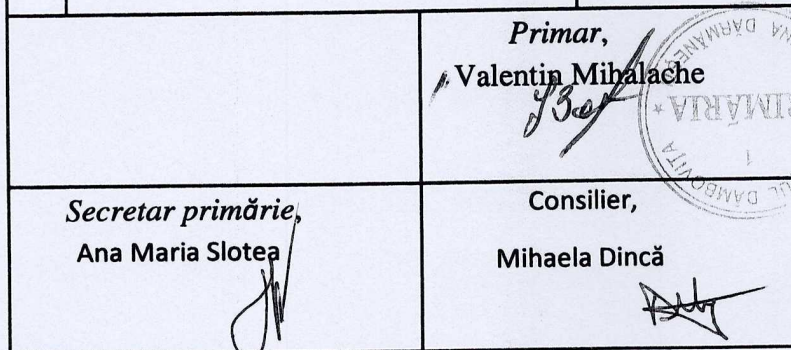 Primar,
Valentin Mihalache
Secretar primărie,
Ana Maria Slotea
Consilier,
Mihaela Dincă
PRIMĂRIA
1
DÂMBOVIȚA